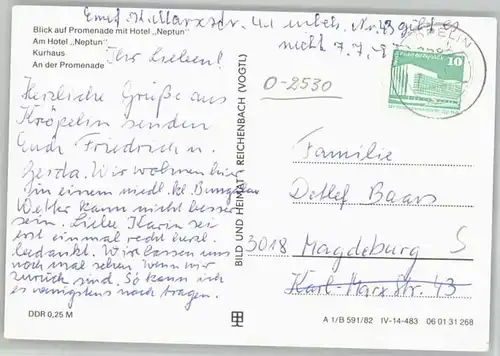 Empf. K. Marxstr. 41 unbek. Nr. 43 gibt es
nicht 7.7.
Blick auf Promenade mit Hotel „Neptun"
Am Hotel „Neptun"
Kurhaus
An der Promenade
Ihr Lieben!
Herzliche Grüße aus
Kröpelin senden
Euch Friedrich u.
Gerda. Wir wohnen hier
in einem niedl. kl. Bungalow
Wetter kann nicht besser
sein. Liebe Karin sei
erst einmal recht herzl.
bedankt. Wir lassen uns
noch mal sehen, wenn wir
zurück sind. So kann ich
es wenigstens nach tragen.
DDR 0,25 M
BILD UND HEIMAT REICHENBACH (VOGTL)
10
O-2530
Familie
Detlef Baars
3018 Magdeburg S
Karl-Marx Str. 43
A 1/B 591/82 IV-14-483 06 01 31 268